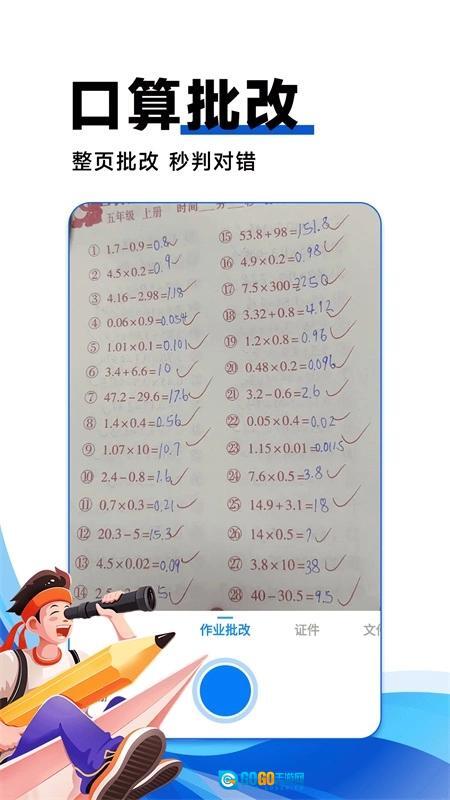 口算批改
整页批改 秒判对错
五年级 上册 时间
① 1.7-0.9=0.8
② 4.5×0.2=0.9
③ 4.16-2.98=1.18
④ 0.06×0.9=0.054
⑤ 1.01×0.1=0.101
⑥ 3.4+6.6=10
⑦ 47.2-29.6=17.6
⑧ 1.4×0.4=0.56
⑨ 1.07×10=10.7
⑩ 2.4-0.8=1.6
⑪ 0.7×0.3=0.21
⑫ 20.3-5=15.3
⑬ 4.5×0.02=0.09
⑭
⑮ 53.8+98=151.8
⑯ 4.9×0.2=0.98
⑰ 7.5×300=2250
⑱ 3.32+0.8=4.12
⑲ 1.2×0.8=0.96
⑳ 0.48×0.2=0.096
㉑ 3.2-0.6=2.6
㉒ 0.05×0.4=0.02
㉓ 1.15×0.01=0.0115
㉔ 7.6×0.5=3.8
㉕ 14.9+3.1=18
㉖ 14×0.5=7
㉗ 3.8×10=38
㉘ 40-30.5=9.5
作业批改 证件
GOGO手游网